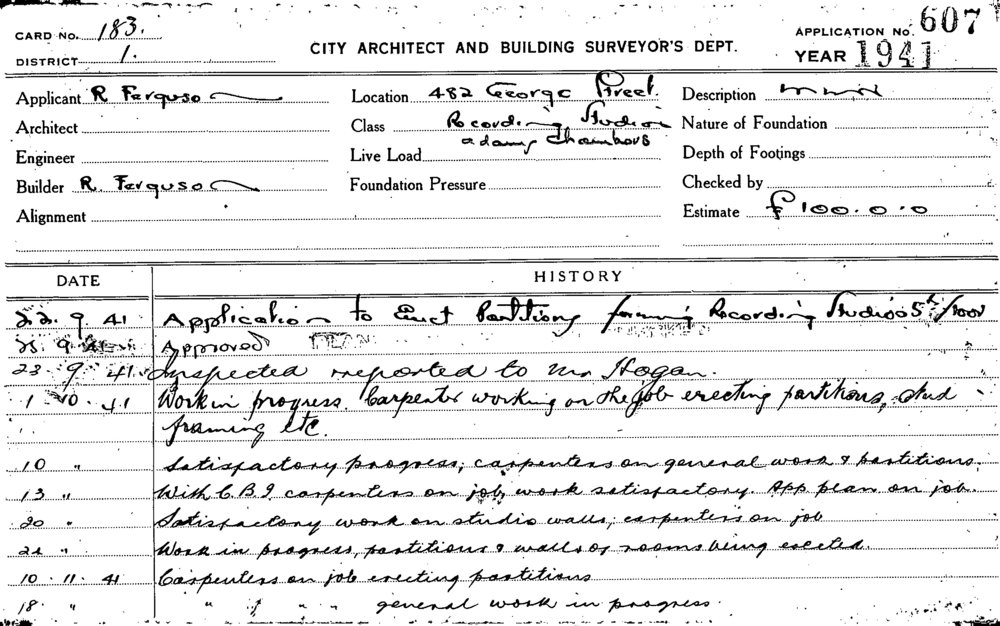 CARD No. 183.
DISTRICT 1.
CITY ARCHITECT AND BUILDING SURVEYOR'S DEPT.
APPLICATION No. 607
YEAR 1941
Applicant R Ferguson
Architect
Engineer
Builder R. Ferguson
Alignment
Location 482 George Street.
Class Recording Studios
Adams Chambers
Live Load
Foundation Pressure
Description
Nature of Foundation
Depth of Footings
Checked by
Estimate £100.0.0
DATE HISTORY
22. 9. 41 Application to Erect Partitions forming Recording Studios 5th floor
25. 9. 41 Approved PLAN
23 9 41 Inspected reported to Mr Hogan.
1 10. 41 Work in progress. Carpenter working on the job erecting partitions, stud
framing etc.
10 " Satisfactory progress; carpenters on general work & partitions.
13 " With C.B.I. carpenters on job, work satisfactory. App plan on job.
20 " Satisfactory work on studio walls; carpenters on job
" Work in progress, partitions & walls of rooms being erected.
10. 11. 41 Carpenters on job erecting partitions
18. " " " " " general work in progress.